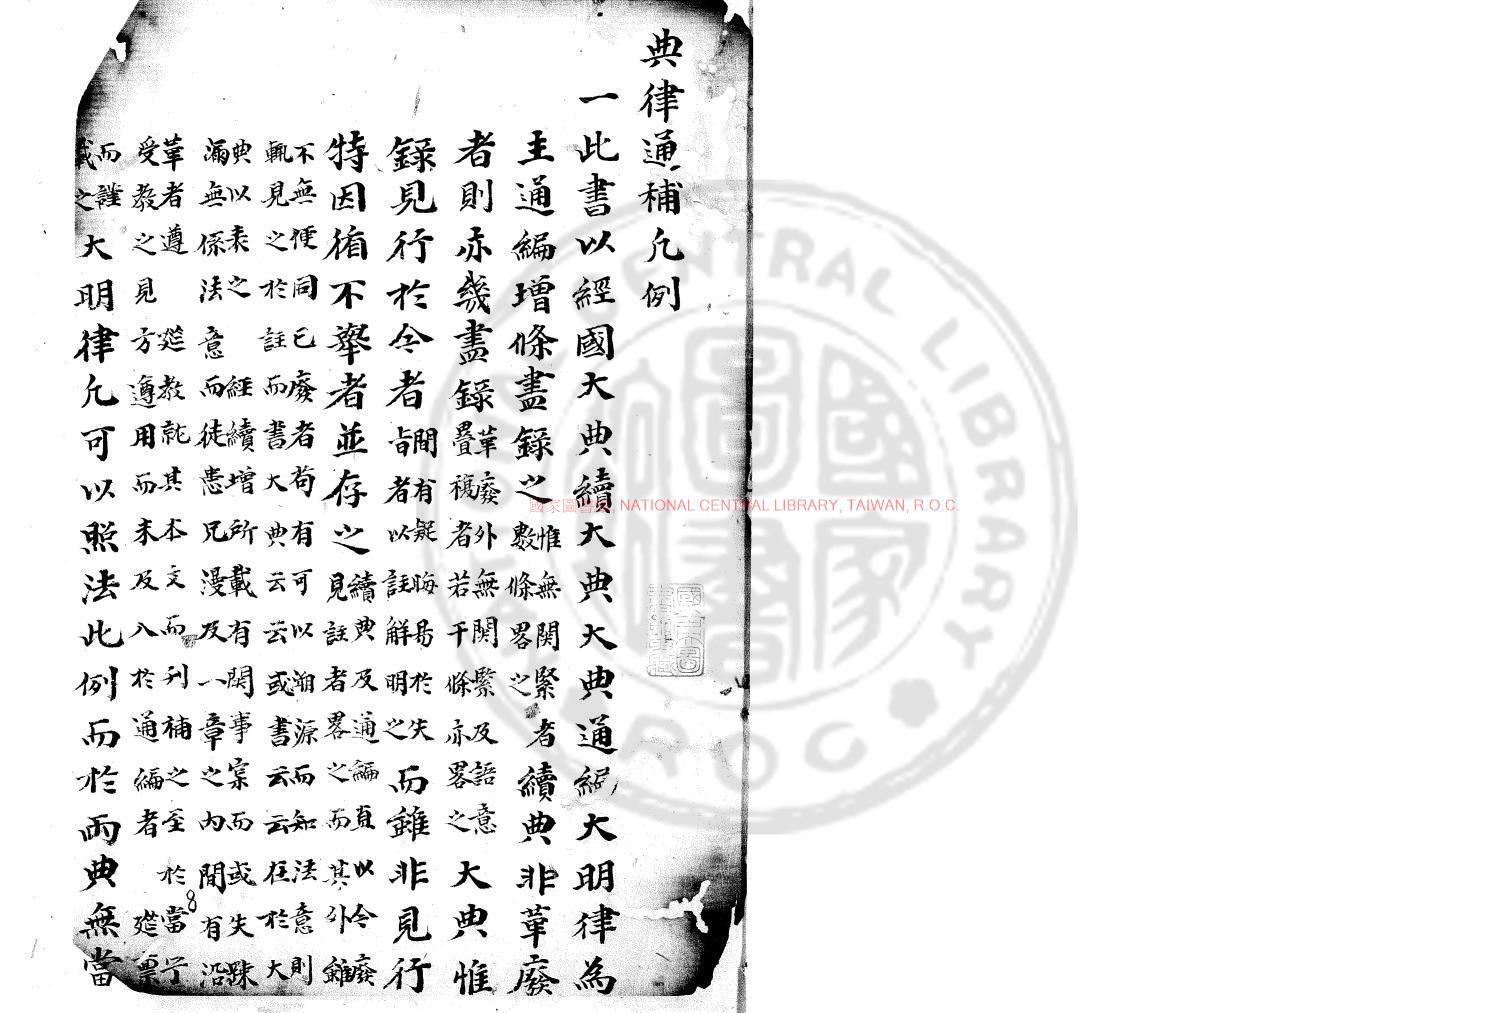 典律通補凡例
一此書以經國大典續大典大典通編大明律為
主通編增條盡錄之惟無関緊者數條畧之續典非革廢
者則亦幾盡錄革廢外無関緊及語意疊複者若干條亦畧之大典惟
錄見行於今者間有疑晦易於失旨者以註解明之而雖非見行
特因循不舉者並存之續典及通編直以今廢見註者畧之而其外雖
不無便同已廢者苟有可以溯源而知法意則輒見之於註而書大典云云或書云云在於大
典以表之經續增所載有関事案而或失踈漏無係法意而徒患冗漫及一章之內間有沿
革者遵筵教就其本文而刊補之至於當宁受教之見方遵用而未及入於通編者筵稟
而謹載之大明律凡可以照法比例而於兩典無當
8
國家圖書館 NATIONAL CENTRAL LIBRARY, TAIWAN, R.O.C.